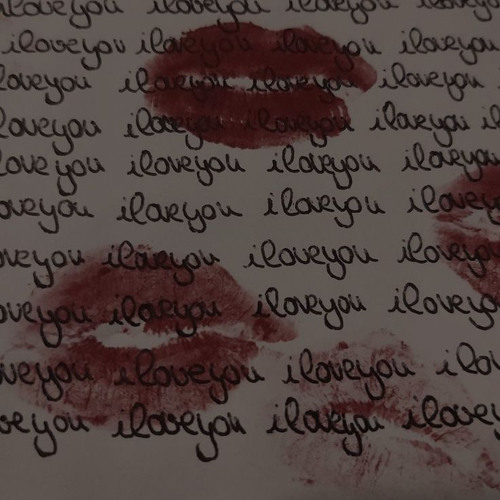 iloveyou iloveyou iloveyou iloveyou
iloveyou iloveyou iloveyou iloveyou
loveyou iloveyou iloveyou iloveyou
loveyou iloveyou iloveyou iloveyou il
love you iloveyou iloveyou iloveyou
oveyou iloveyou iloveyou iloveyo
oveyou iloveyou iloveyou iloveyou
oveyou iloveyou iloveyou iloveyo
veyou iloveyou iloveyou ilov
ve you iloveyou iloveyou ilovey